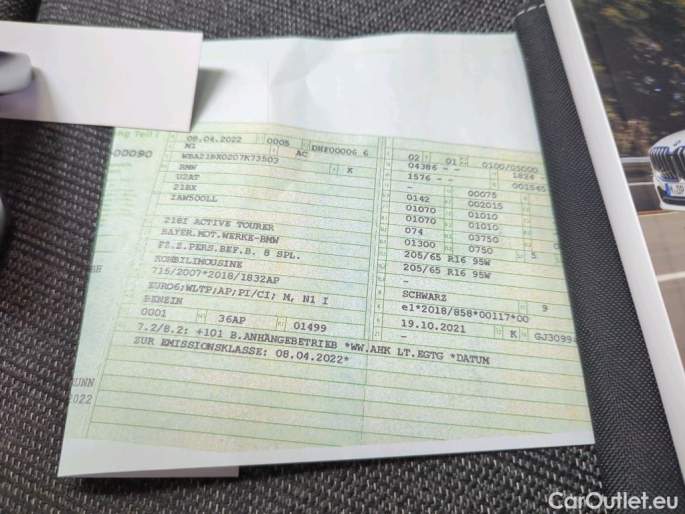 ng Teil I
08.04.2022 0005 DHF00006 6
M1 AC
-00090 WBA21BX0207K73503 X
BMW
U2AT
21BX
ZAW500LL
218I ACTIVE TOURER
BAYER.MOT.WERKE-BMW
FZ.Z.PERS.BEF.B. 8 SPL.
KOMBILIMOUSINE
715/2007*2018/1832AP
EURO6;WLTP;AP;PI/CI; M, N1 I
BENZIN
0001 36AP 01499
7.2/8.2: +101 B.ANHÄNGEBETRIEB *WW.AHK LT.EGTG *DATUM
ZUR EMISSIONSKLASSE: 08.04.2022*
2022
02 01 0100/05000
04386 - - 1824
1576 - - 001545
- 00075
0142 002015
01070 01010
01070 01010
074 03750
01300 0750 5
205/65 R16 95W
205/65 R16 95W
-
SCHWARZ 9
e1*2018/858*00117*00
19.10.2021 K GJ3099
-
CarOutlet.eu